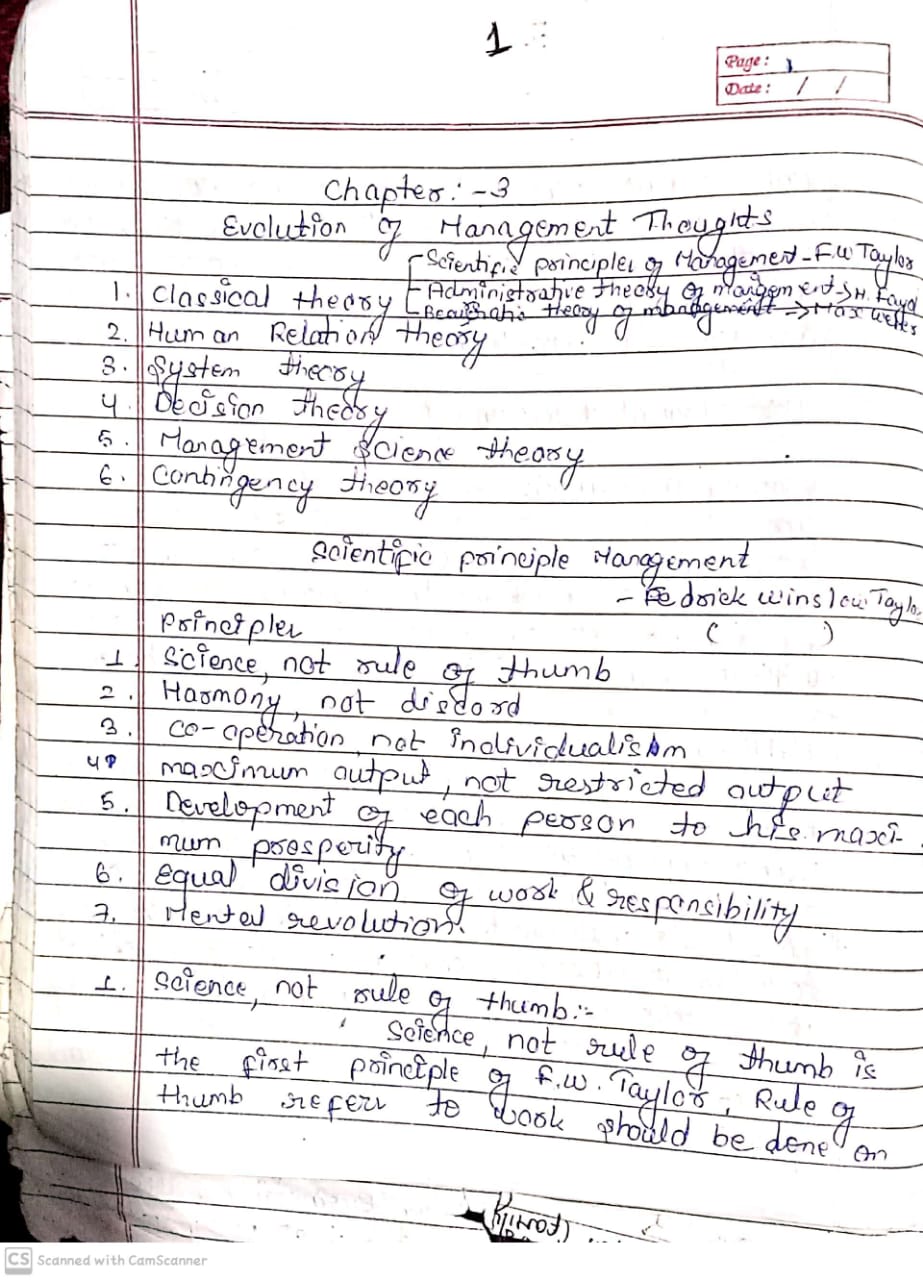 1
Page: 1
Date: / /
Chapter:-3
Evolution of Management Thoughts
Scientific principles of Management-F.W Taylor
1. Classical theory Administrative theory of mangement => H. Fayol
theory of management => Max
2. Human Relation theory
3. System theory
4. Decision theory
5. Management Science theory
6. Contingency theory
Scientific principle Management
- Fedrick Winslow Taylo
( )
Principles
1. Science, not rule of thumb
2. Harmony, not discord
3. co-operation, not individualism
4. maximum output, not restricted output
5. Development of each person to his maxi-
mum prosperity
6. Equal division of work & responsibility
7. Mental revolution.
1. Science, not rule of thumb:-
Science, not rule of thumb is
the first principle of F.W. Taylor, Rule of
thumb refers to work should be done on
CS Scanned with CamScanner